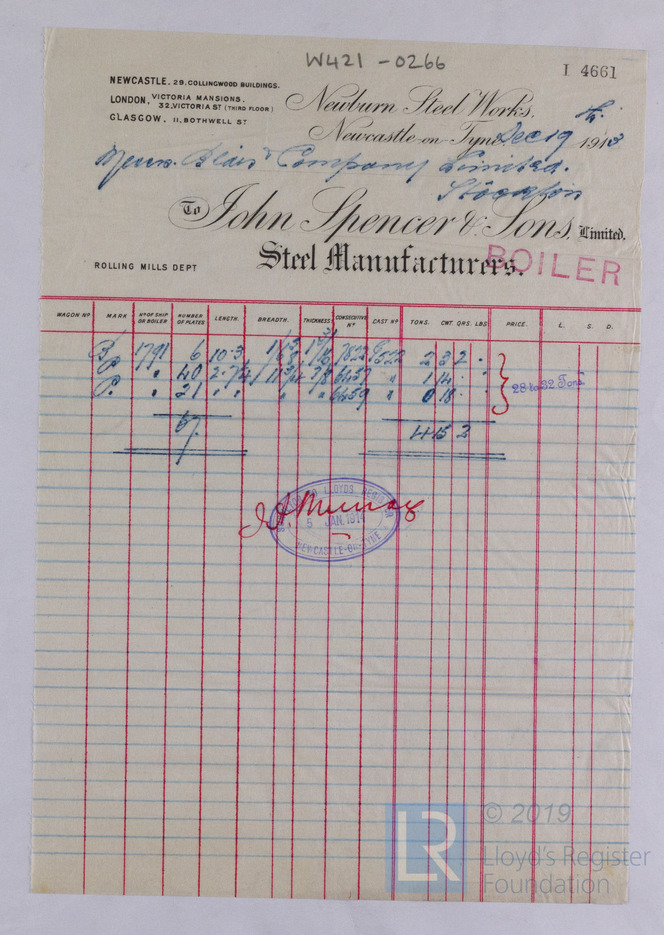 W421-0266
I 4661
NEWCASTLE. 29, COLLINGWOOD BUILDINGS.
LONDON, VICTORIA MANSIONS.
32, VICTORIA ST (THIRD FLOOR)
GLASGOW, 11, BOTHWELL ST
Newburn Steel Works,
Newcastle-on-Tyne Dec 19 1913
Messrs. Blair & Company Limited.
Stockton
To John Spencer & Sons, Limited.
Steel Manufacturers.
BOILER
ROLLING MILLS DEPT
WAGON Nº MARK Nº OF SHIP OR BOILER NUMBER OF PLATES LENGTH. BREADTH. THICKNESS CONSECUTIVE Nº CAST Nº TONS. CWT. QRS. LBS PRICE. L. S. D.
1791 6 10.3 7822 9522 2 3 2 .
" 40 2.7¼ 11¾ 7/8 6457 " 1 14 .
" 21 " " " 6459 " 0 18 .
28 to 32 Tons
67 4 15 2
J A Murray
LLOYDS REGISTER
5 JAN. 191
NEWCASTLE-ON-TYNE
LR
© 2019
Lloyd's Register
Foundation